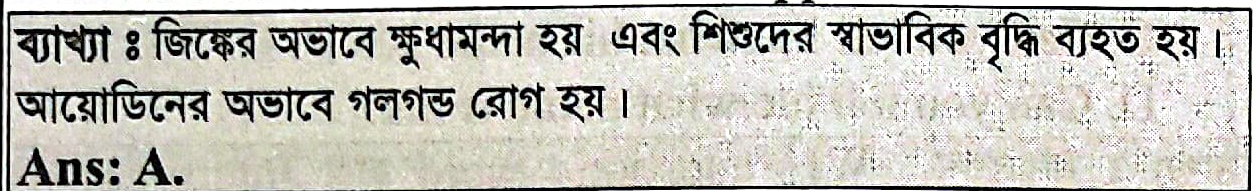 ব্যাখ্যা ঃ জিঙ্কের অভাবে ক্ষুধামন্দা হয় এবং শিশুদের স্বাভাবিক বৃদ্ধি ব্যহত হয়।
আয়োডিনের অভাবে গলগন্ড রোগ হয়।
Ans: A.